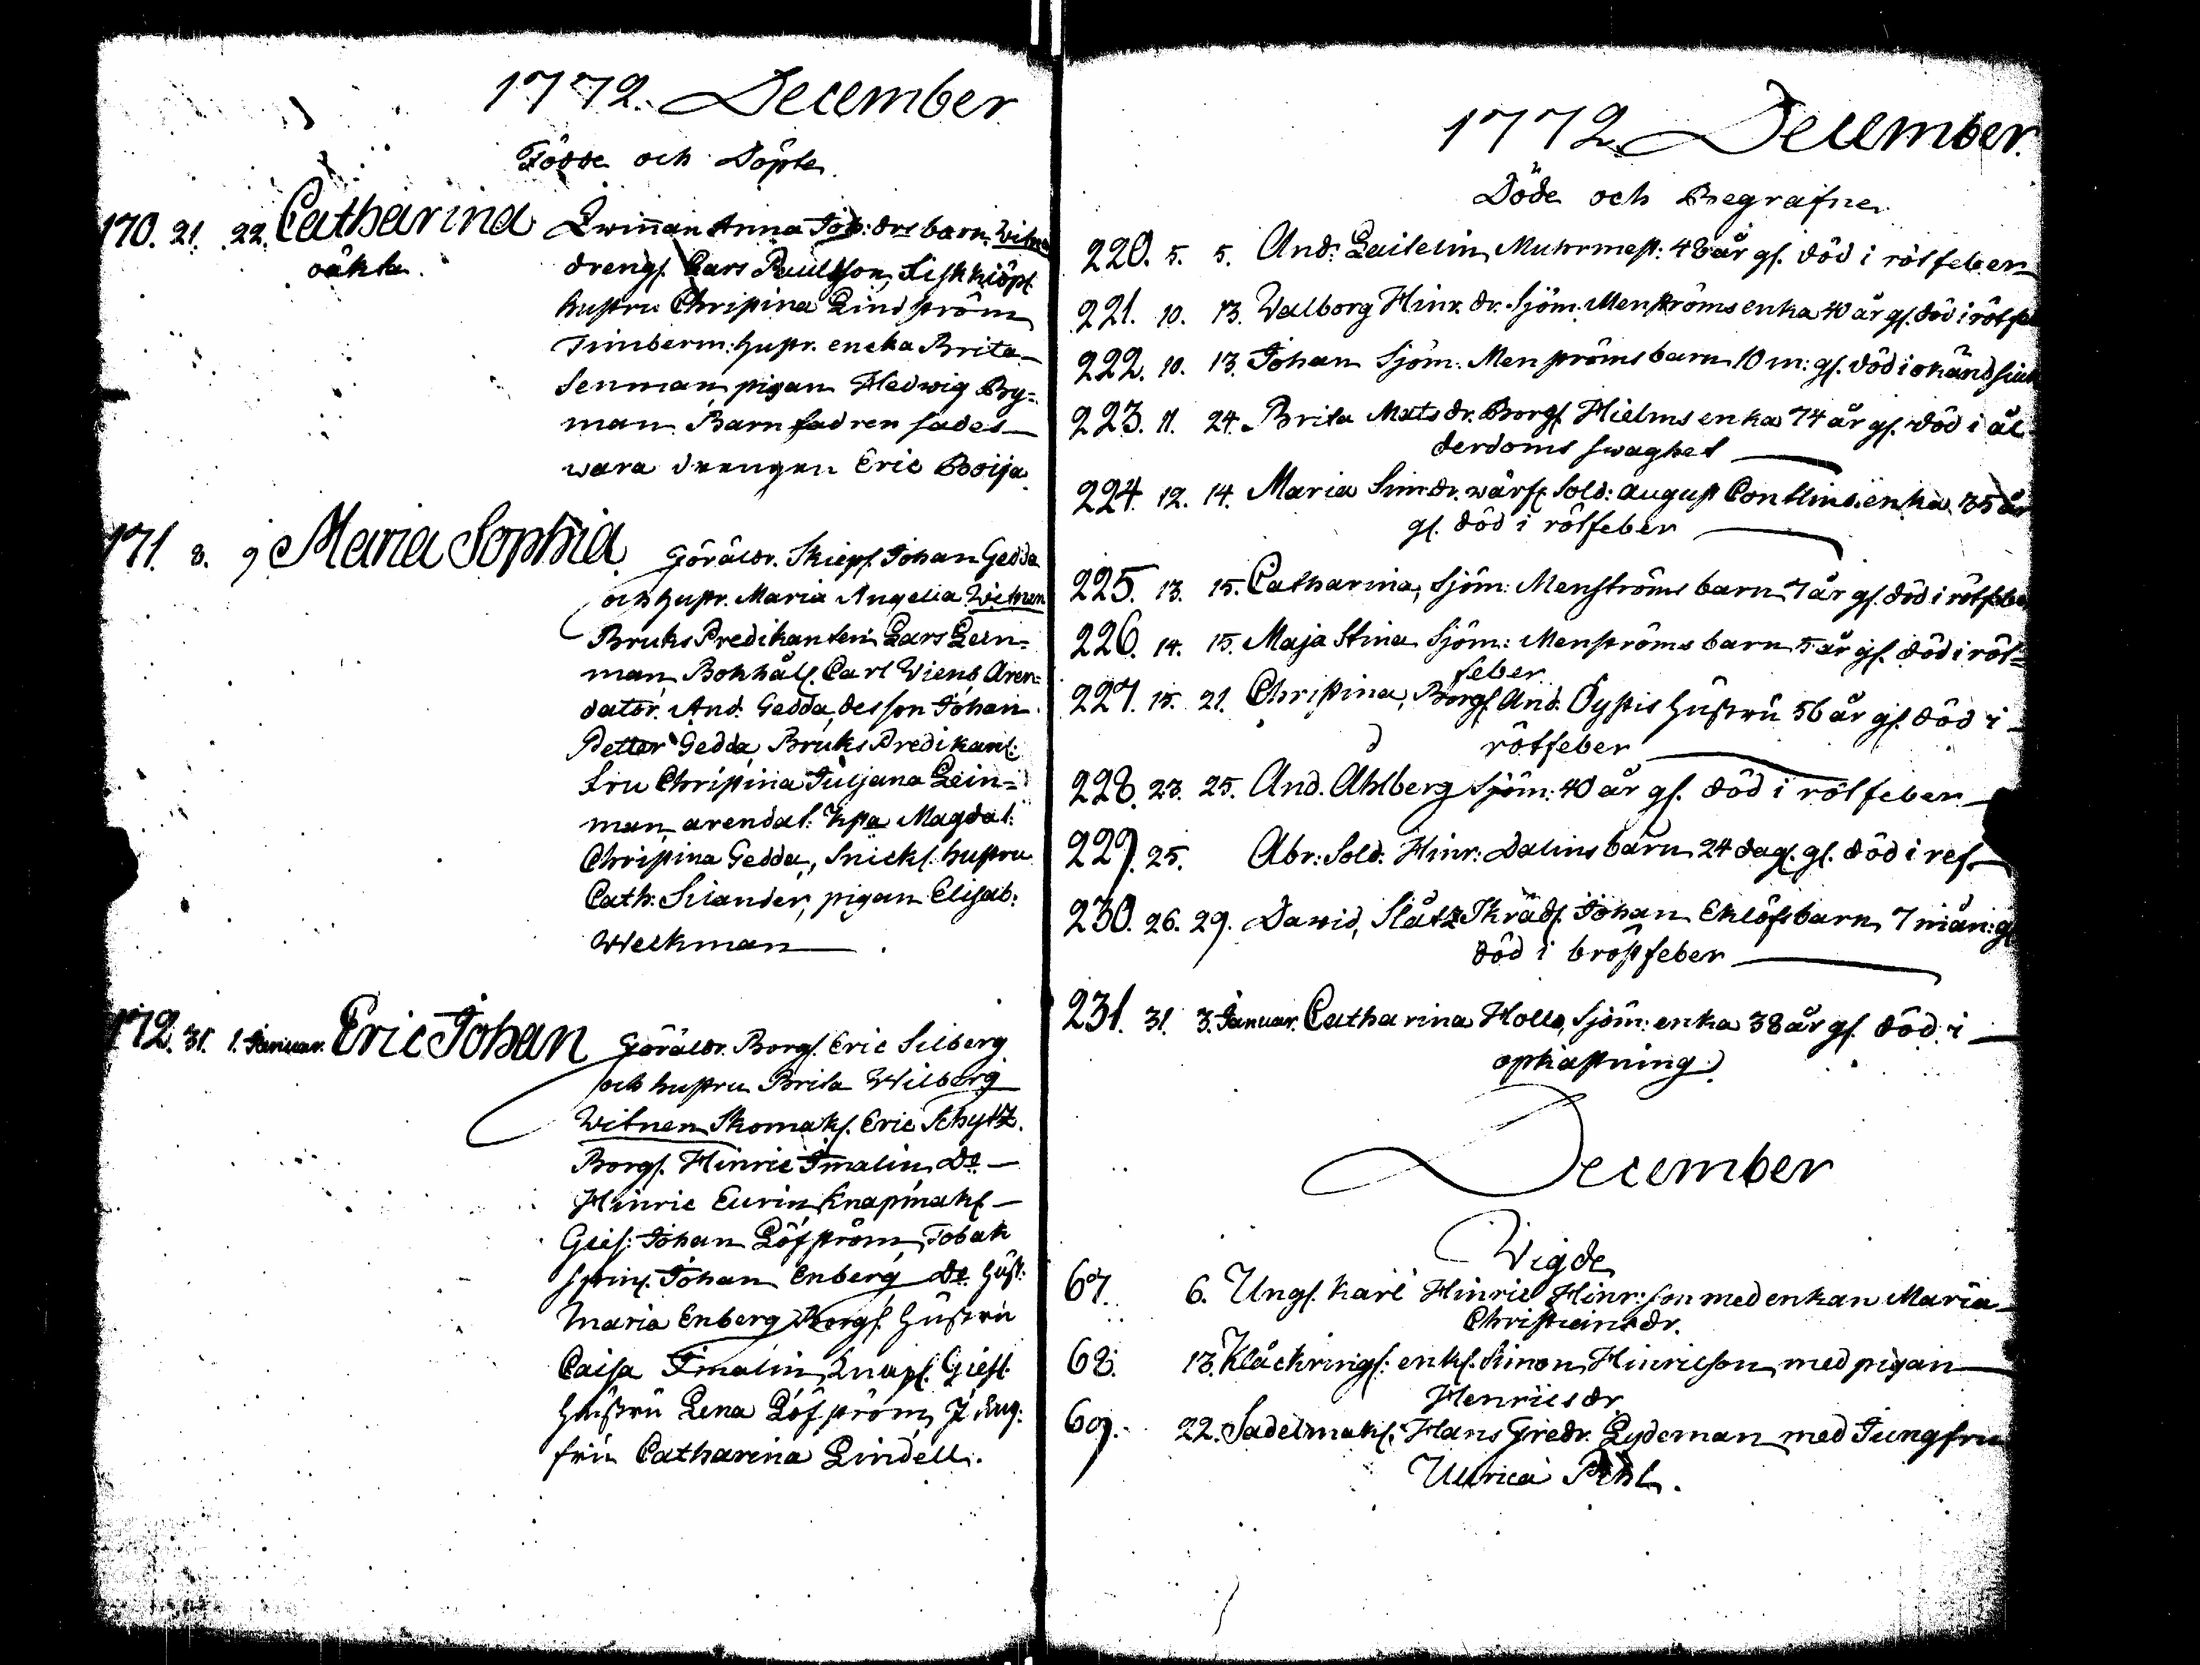 1772. December
Födde och Döpte
170. 21. 22. Catharina Qwinnan Anna Joh: drs barn. Witn:
oäkta. drengs. Lars Paulsson, Fiskkiöps.
hustru Christina Lindström
Timberm: hustr. encka Brita
Senman pigan Hedwig By=
man. Barnfadren sades
wara drengen Eric Boija
171. 8. 9 Maria Sophia Föräldr. Skieps. Johan Gedda
och hustr. Maria Angelia Witnen
Bruks Predikanten Lars Lein=
man Bokhåls. Carl Wiens Aren=
dator. And. Gedda, desson Johan
Petter Gedda, Bruks Predikant:
fru Christina Juljana Lein=
man arendat: Magdal:
Christina Gedda, Snicks. hustru
Cath: Silander, pigan Elisab:
Welkman
172. 31. 1. Januar. Eric Johan Föräldr. Borgs. Eric Silberg
och hustru Brita Wilberg
Witnen Skomaks. Eric Schytz.
Borgs. Hinric Imalin, Do
Hinric Eurin, Knapmaks
Gies: Johan Löfström, Tobak
spins. Johan Enberg Do. hust:
Maria Enberg Borgs. hustru
Caisa Imalin, Knaps. Gies.
hustru Lena Löfström, Jung:
fru Catharina Lindell.
1772 December.
Döde och Begrafne
220. 5. 5. And: Laitelin, Muhrmest: 48 år gl. död i rötfeber
221. 10. 13. Walborg Hinr. dr. Sjöm: Menströms enka 40 år gl. död i rötfe
222. 10. 13. Johan Sjöm: Menströms barn 10 m: gl. död i okänd siuk
223. 11. 24. Brita Mats dr. Borgs Hielms enka 74 år gl. död i ål
derdoms swaghet
224. 12. 14. Maria Sim dr. wärf. Sold: August Contlins enka 35 år
gl. död i rötfeber
225. 13. 15. Catharina, Sjöm: Menströms barn 7 år gl. död i rötfebe
226. 14. 15. Maja Stina Sjöm: Menströms barn 5 år gl. död i röt=
feber
227. 15. 21. Christina, Borgs. And. Öystis hustru 56 år gl. död i
rötfeber
228. 23. 25. And. Ahlberg Sjöm: 40 år gl. död i rötfeber
229. 25. Abr: Sold: Hinr: Dalins barn 24 dag. gl. död i ref
230. 26. 29. David, Slåtz Skräds. Johan Eklöfs barn 7 mån: gl
död i bröstfeber
231. 31. 3. Januar. Catharina Hollo, Sjöm: enka 38 år gl. död i
opkastning
December
Wigde
67. 6. Ungs. karl Hinric Hinr: son med enkan Maria
Christians dr.
68. 13. Kläckrings: enkl. Simon Hinricson med pigan
Henrics dr
69. 22. Sadelmaks. Hans Fredr. Lydeman med Jungfru
Ulrica Pihl.